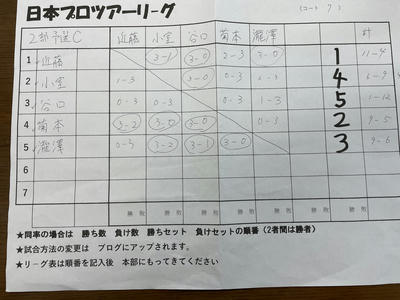 日本プロツアーリーグ
(コート 7 )
2部予選C 近藤 小室 谷口 菊本 瀧澤 計
1 近藤 3-1 3-0 2-3 3-0 1 11-4
2 小室 1-3 3-0 0-3 2-3 4 6-9
3 谷口 0-3 0-3 0-3 1-3 5 1-12
4 菊本 3-2 3-0 3-0 0-3 2 9-5
5 瀧澤 0-3 3-2 3-1 3-0 3 9-6
6
7
勝 敗 勝 敗 勝 敗 勝 敗 勝 敗 勝 敗 勝 敗
★同率の場合は 勝ち数 負け数 勝ちセット 負けセットの順番(2者間は勝者)
★試合方法の変更は ブログにアップされます。
★リーグ表は順番を記入後 本部にもってきてください